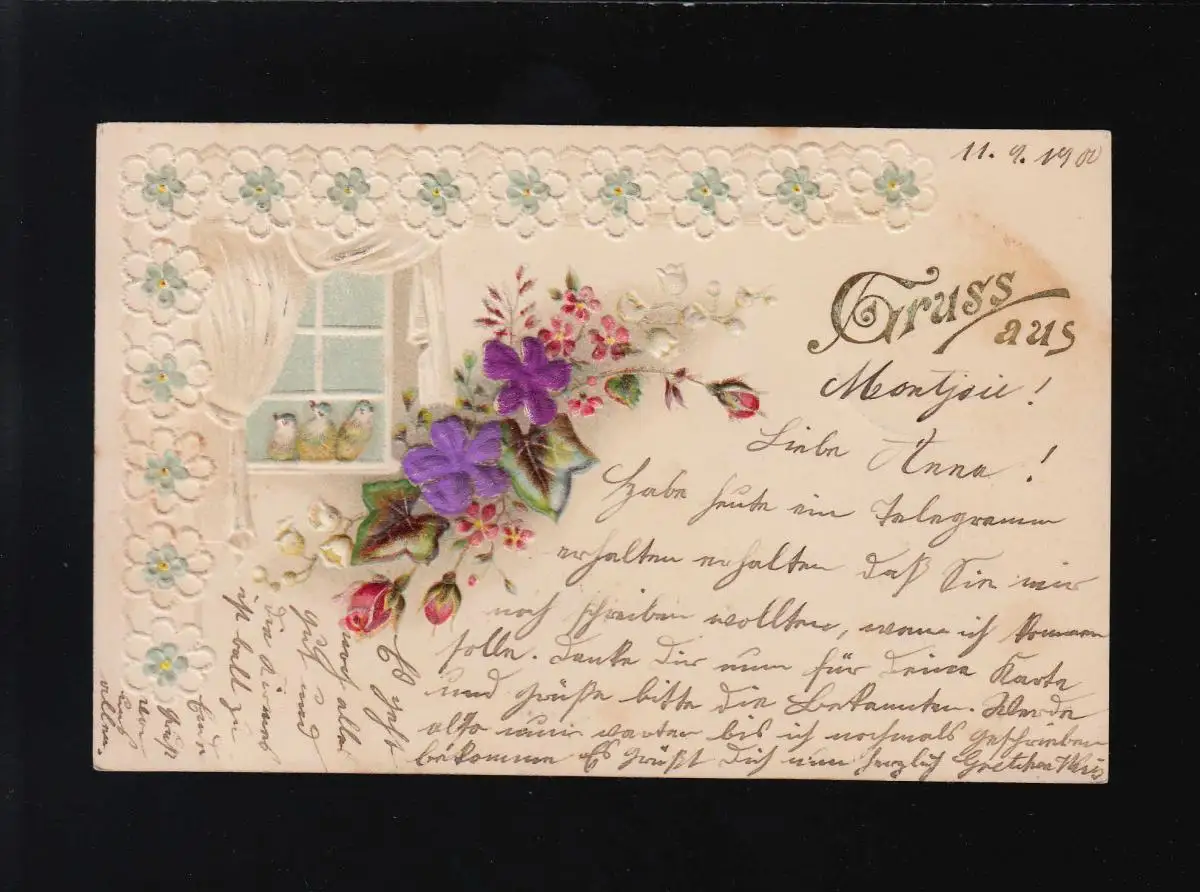 11. 9. 1900
Gruss
aus
Montjoie!
Liebe Anna!
Habe heute ein Telegramm
erhalten erhalten daß Sie mir
noch schreiben wollten, wann ich kommen
solle. Danke Dir nun für Deine Karte
und Grüße bitte die Bekannten. Werde
also nun warten bis ich nochmals geschrieben
bekomme Es grüßt Dich nun herzlich Gretchen
Es geht
noch alles
gut und
die
ist bald zu
Ende
Gruß
von
uns
allen.